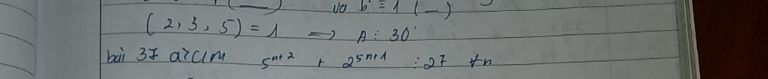 và b = 1 (_)
(2,3,5) = 1 => A ⋮ 30
bài 37 a) CLM 5^{n+2} + 2^{5n+1} ⋮ 27 ∀n